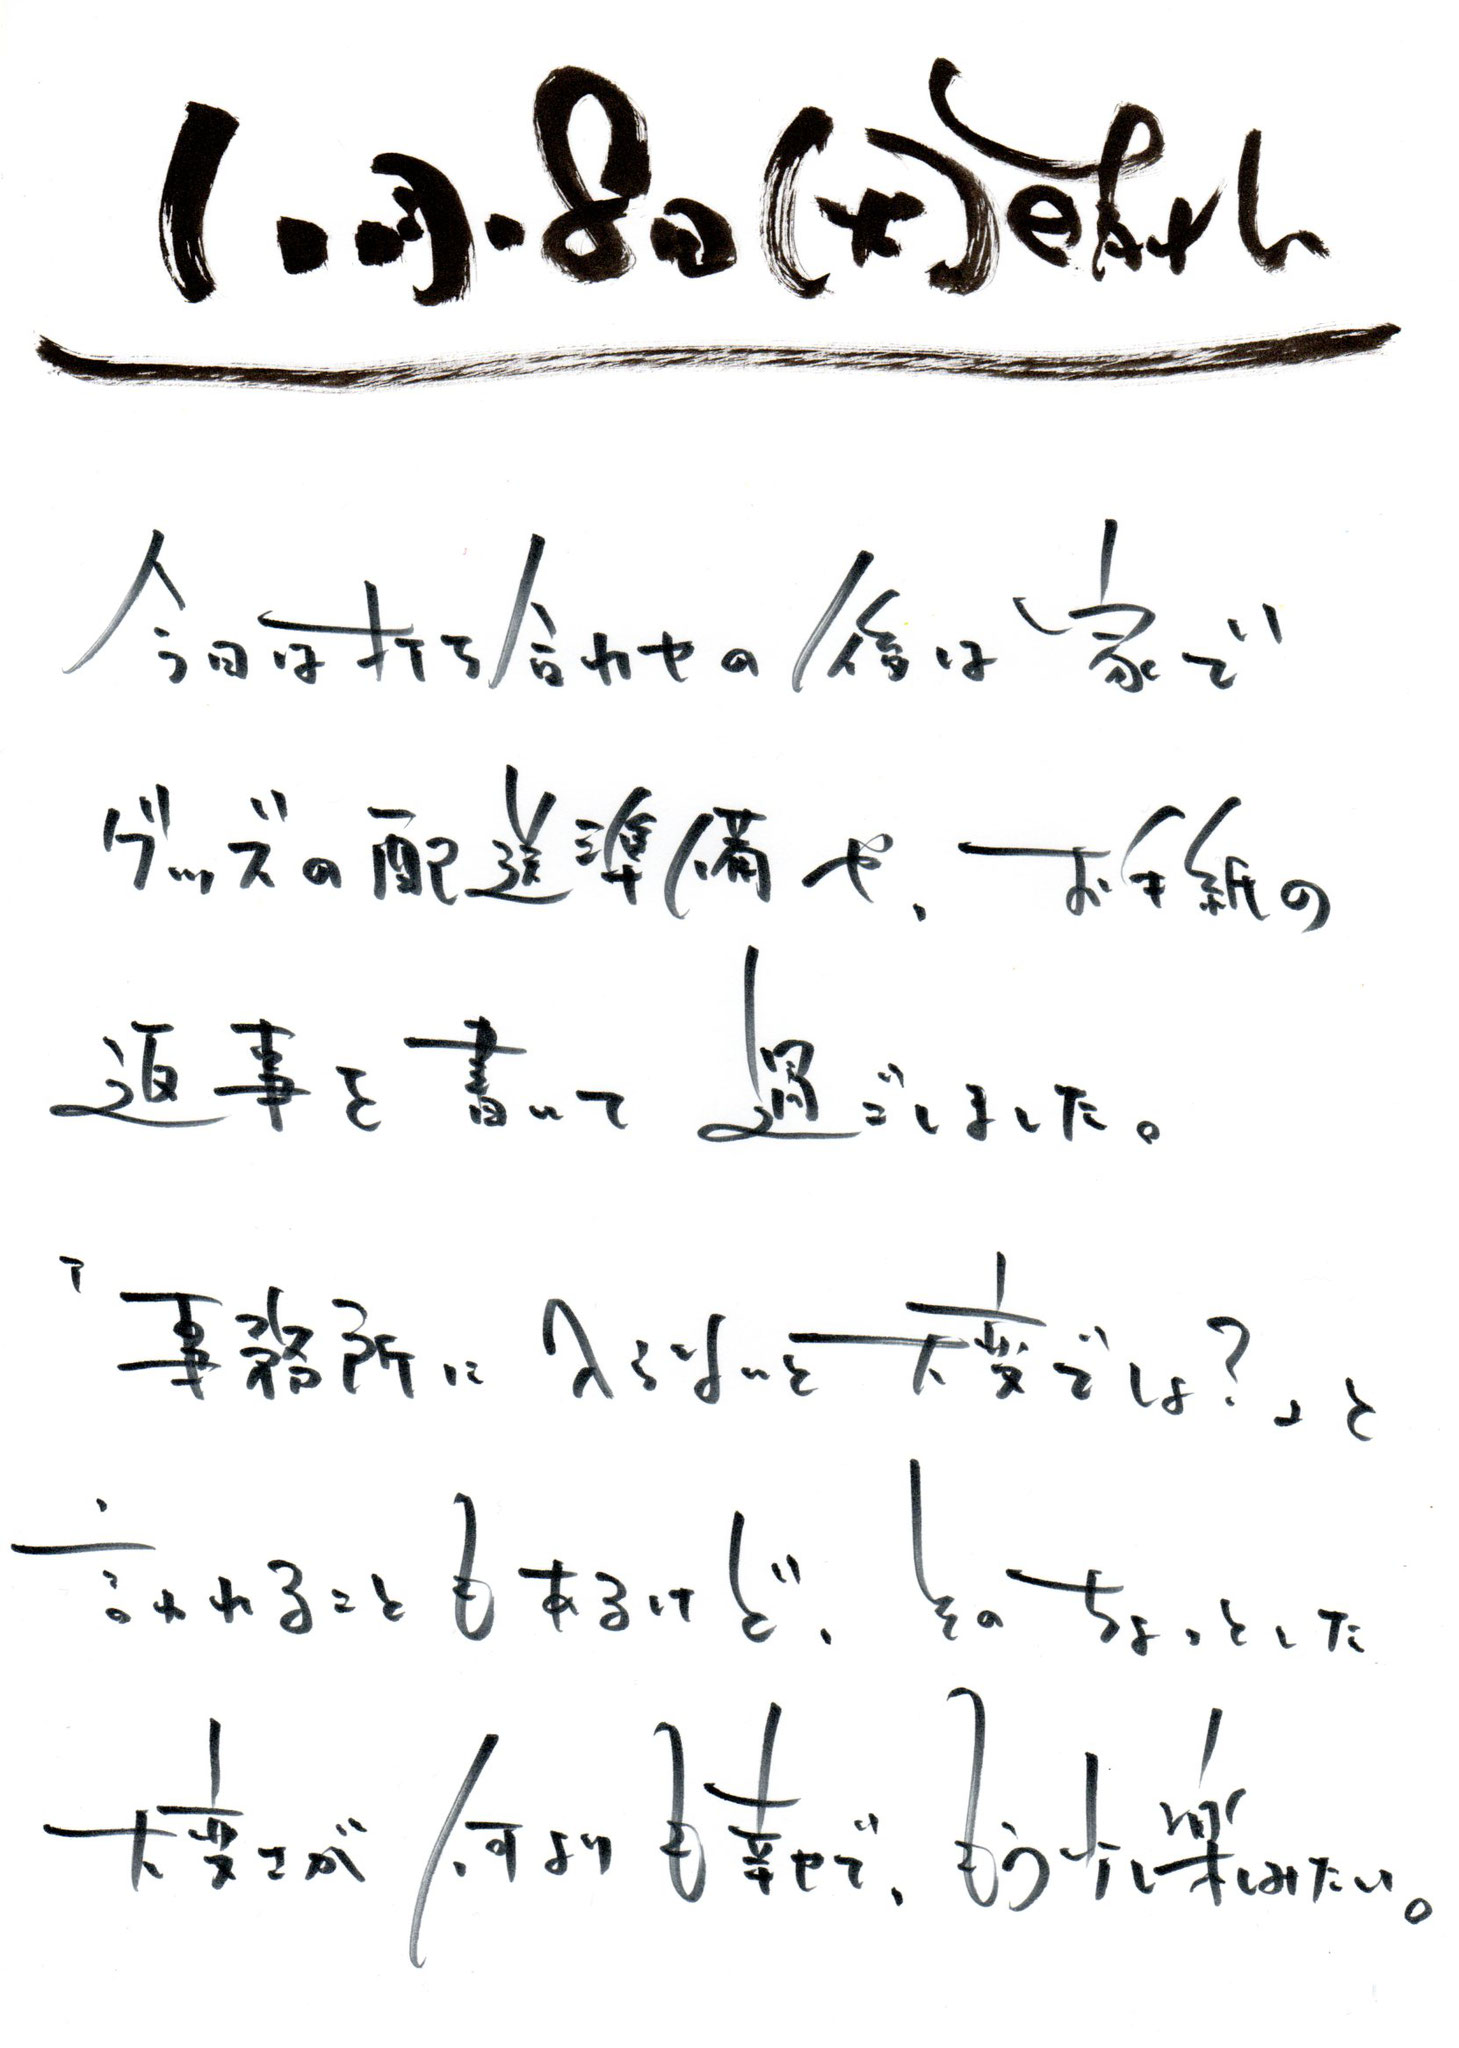 1.月.8日(木)
今日は打ち合わせの後は家で
グッズの配送準備や、お手紙の
返事を書いて過ごしました。
「事務所に入らないと大変でしょ?」と
言われることもあるけど、そのちょっとした
大変さが何よりも幸せで、もう少し楽しみたい。